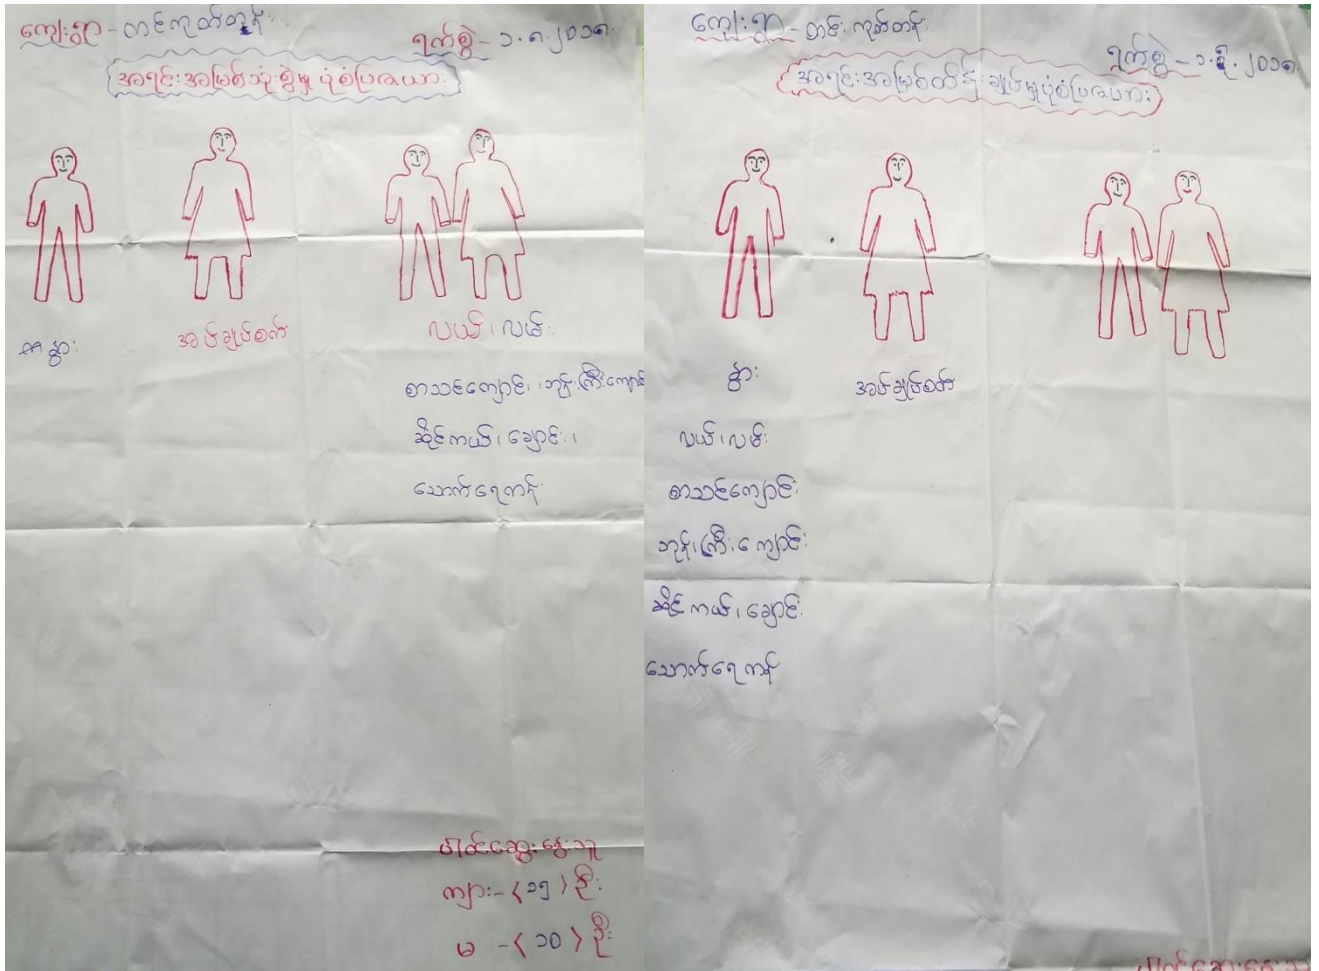 ကျေးရွာ - တင်ကုတ်တန်း
ရက်စွဲ - ၁.၈.၂၀၁၈
အရင်းအမြစ်သုံးစွဲမှု ပုံစံပြဇယား
နွား
အပ်ချုပ်စက်
လယ်၊ လမ်း
စာသင်ကျောင်း၊ ဘုန်းကြီးကျောင်း
ဆိုင်ကယ်၊ ချောင်း၊
သောက်ရေကန်
ပါဝင်ဆွေးနွေးသူ
ကျား - <၁၅> ဦး
မ - <၁၀> ဦး
ကျေးရွာ - တင်းကုတ်တန်း
ရက်စွဲ - ၁.၈.၂၀၁၈
အရင်းအမြစ်ထိန်းချုပ်မှုပုံစံပြဇယား
နွား
အပ်ချုပ်စက်
လယ်၊ လမ်း
စာသင်ကျောင်း
ဘုန်းကြီးကျောင်း
ဆိုင်ကယ်၊ ချောင်း
သောက်ရေကန်
ပါဝင်ဆွေးနွေးသူ